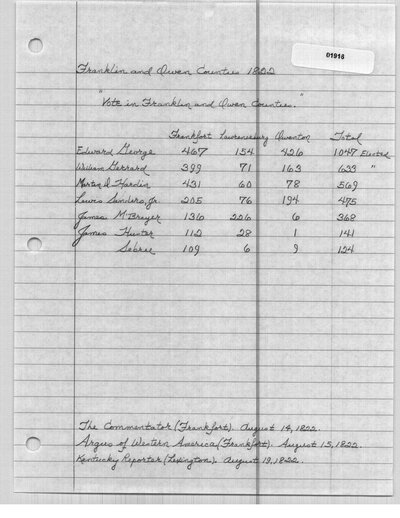 01918
Franklin and Owen Counties 1822
"Vote in Franklin and Owen Counties."
Frankfort Lawrenceburg Owenton Total
Edward George 467 154 426 1047 Elected
William Gerrard 399 71 163 633 "
Martin D Hardin 431 60 78 569
Lewis Sanders, Jr. 205 76 194 475
James McBrayer 136 226 6 368
James Hunter 112 28 1 141
Sebree 109 6 9 124
The Commentator (Frankfort). August 14, 1822.
Argus of Western America (Frankfort). August 15, 1822.
Kentucky Reporter (Lexington). August 19, 1822.